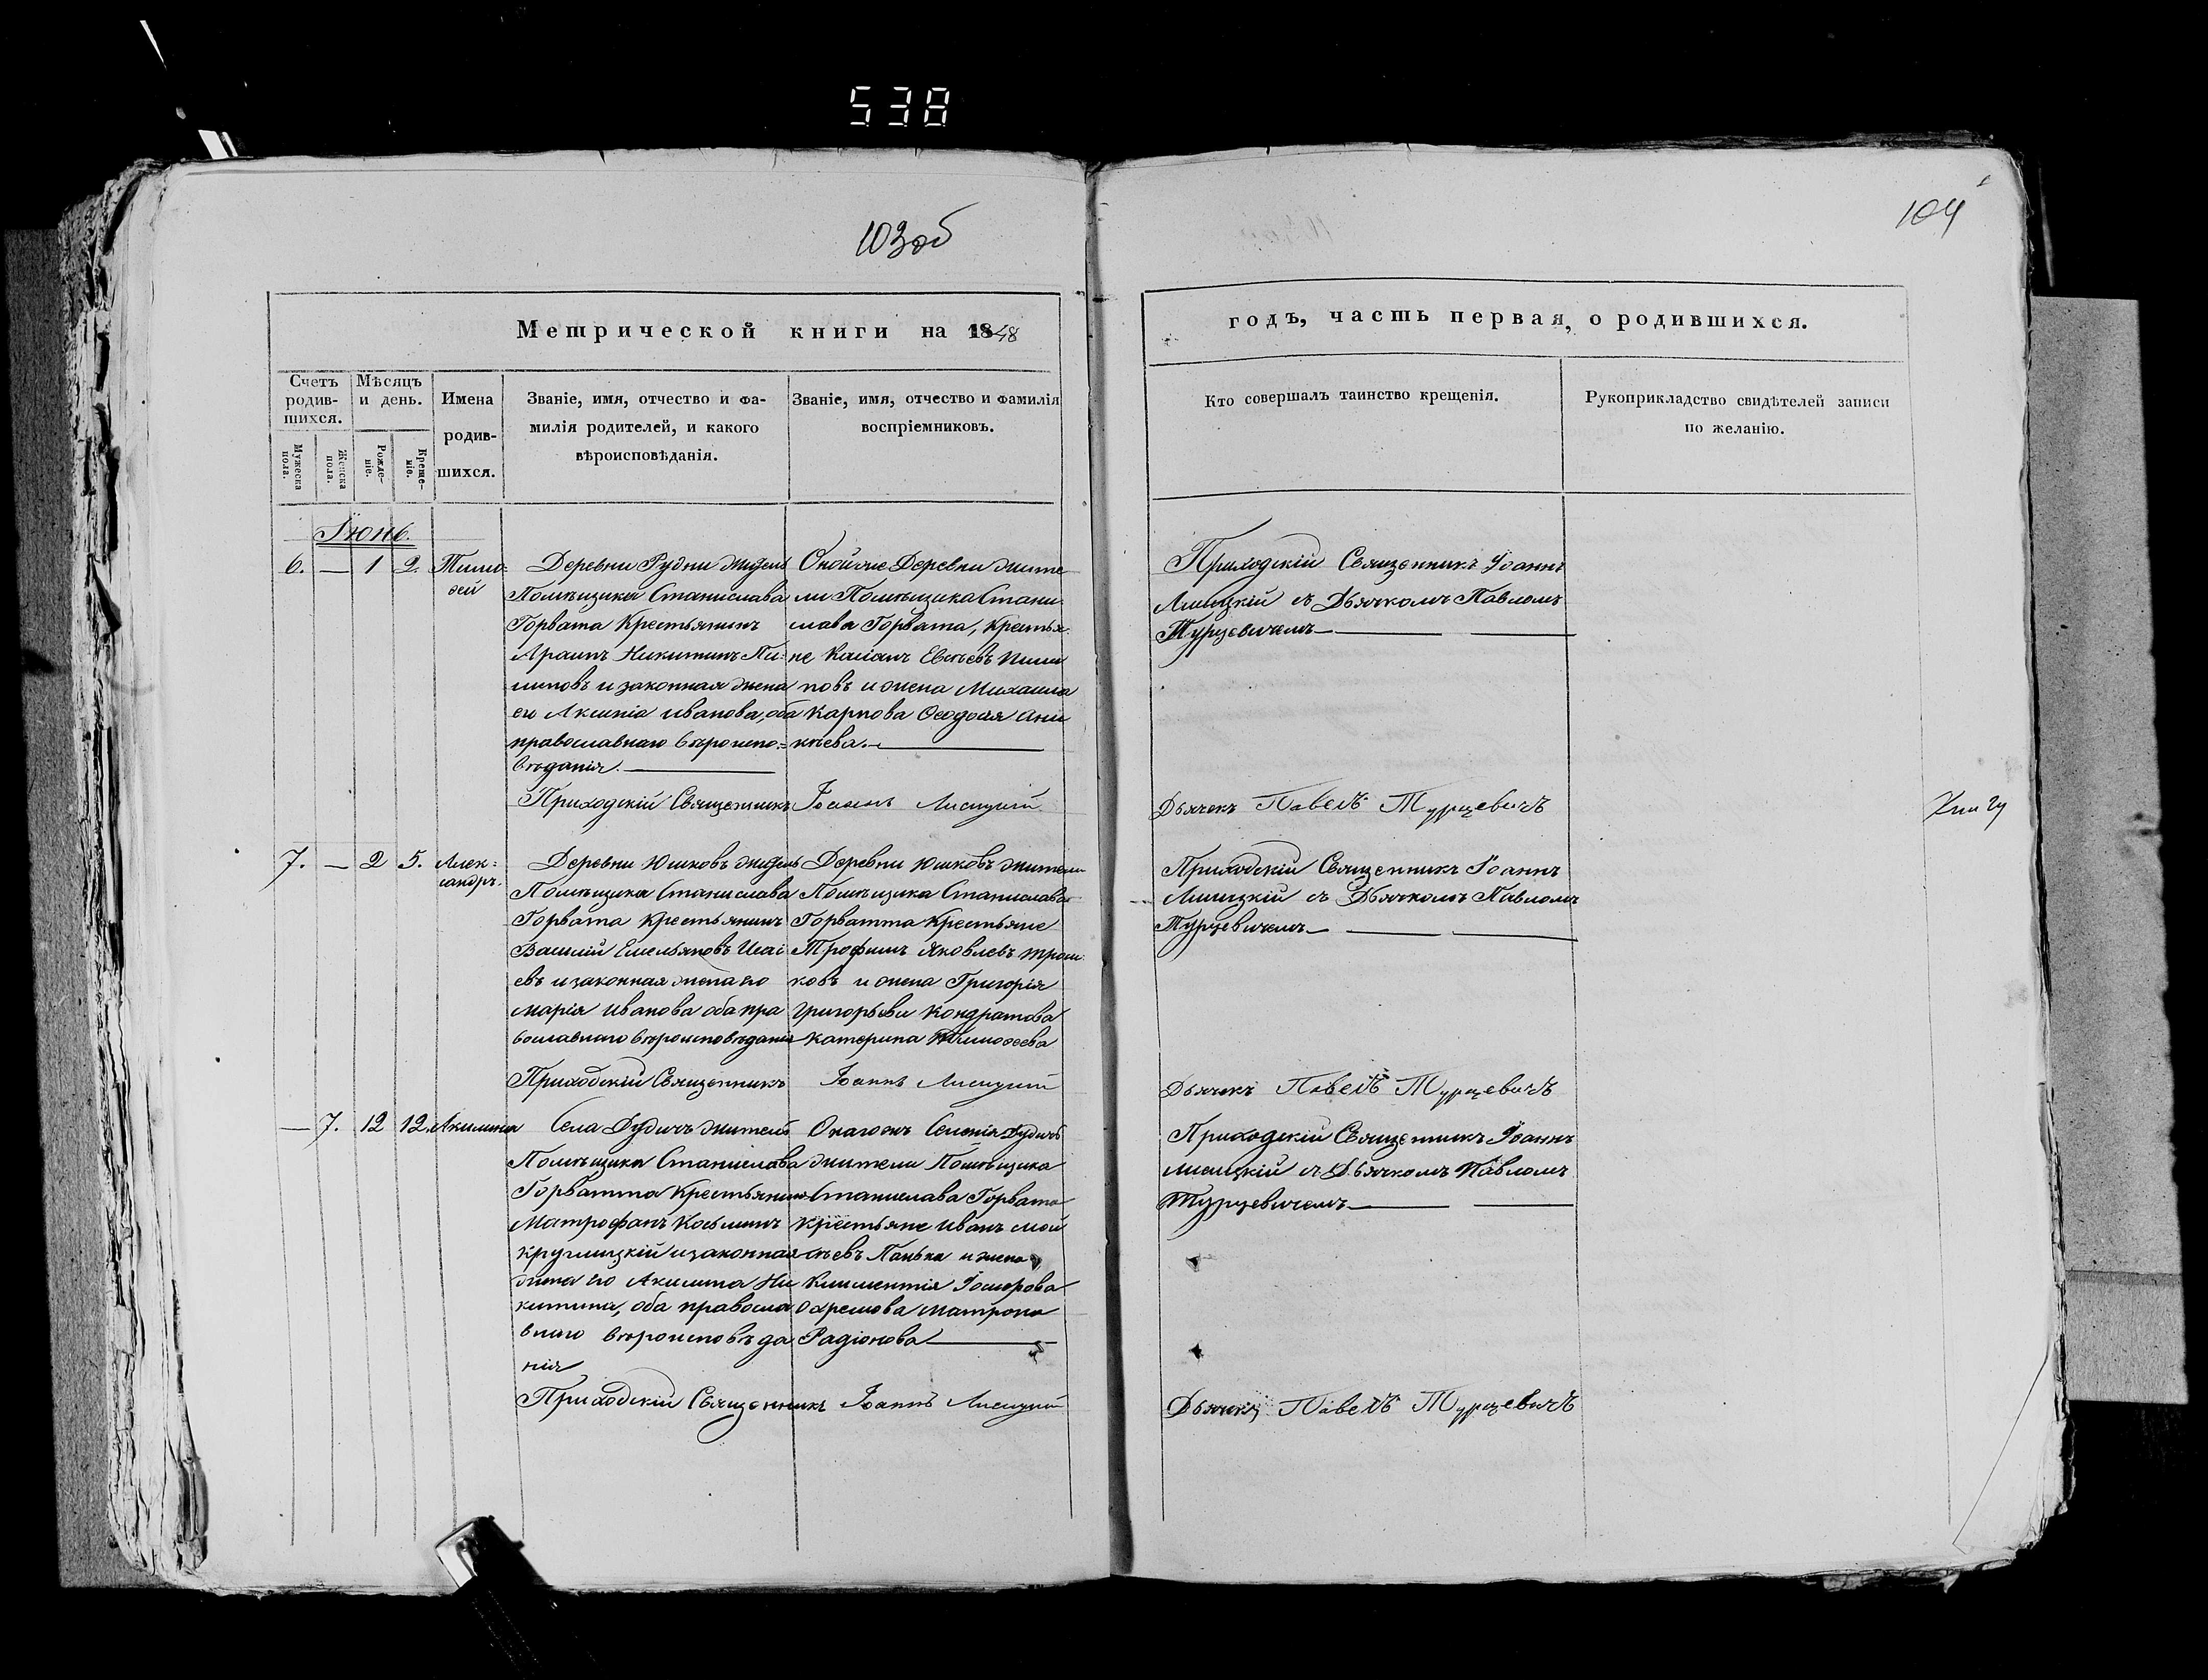 538
103об
104
Метрической книги на 1848
годъ, часть первая, о родившихся.
Счетъ родив-шихся.
Мужеска пола.
Женска пола.
Мѣсяцъ и день.
Рожде-ніе.
Креще-ніе.
Имена родив-шихся.
Званіе, имя, отчество и фа-
милія родителей, и какого
вѣроисповѣданія.
Званіе, имя, отчество и фамилія
воспріемниковъ.
Кто совершалъ таинство крещенія.
Рукоприкладство свидѣтелей записи
по желанію.
Іюнь.
6. — 1 2. Тимо-
ѳей
Деревни Рудни житель
Помѣщика Станислава
Горвата Крестьянинъ
Никитинъ Пи-
липовъ и законная жена
его Аксинія Иванова, оба
православнаго вѣроиспо-
вѣданія.
Оной же Деревни жите
ли Помѣщика Стани
слава Горвата, Крестья
не Касіанъ Пили
повъ и жена Михаила
Карпова Ѳеодосія Ани
кѣева.
Приходскій Священникъ Іоаннъ
Лисицкій съ Дьячкомъ Павломъ
Турцевичемъ
Приходскій Священникъ Іоаннъ Лисицкій
Дьячекъ Павелъ Турцевичъ
7. — 2 5. Алек-
сандръ.
Деревни Юшковъ житель
Помѣщика Станислава
Горвата Крестьянинъ
Василій Емельяновъ Исаі
евъ и законная жена его
Марія Иванова оба пра
вославнаго вѣроисповѣданія
Деревни Юшковъ жители
Помѣщика Станислава
Горватта Крестьяне
Трофимъ Яковлевъ Трош
ковъ и жена Григорія
Григорьева Кондратова
Катерина Тимоѳеева
Приходскій Священникъ Іоаннъ
Лисицкій съ Дьячкомъ Павломъ
Турцевичемъ
Приходскій Священникъ Іоаннъ Лисицкій
Дьячекъ Павелъ Турцевичъ
— 7. 12 12. Акилина
Села Дудичъ житель
Помѣщика Станислава
Горватта Крестьянинъ
Матрофанъ Косьминъ
Круглицкій и законная
жена его Акилина Ни
китина, оба правосла
внаго вѣроисповѣда
нія
Онагожъ Селенія Дудичъ
жители Помѣщика
Станислава Горвата
Крестьяне Иванъ Мои
сѣевъ Панька и жена
Климентія
Охремова Матрона
Радіонова
Приходскій Священникъ Іоаннъ
Лисицкій съ Дьячкомъ Павломъ
Турцевичемъ
Приходскій Священникъ Іоаннъ Лисицкій
Дьячекъ Павелъ Турцевичъ